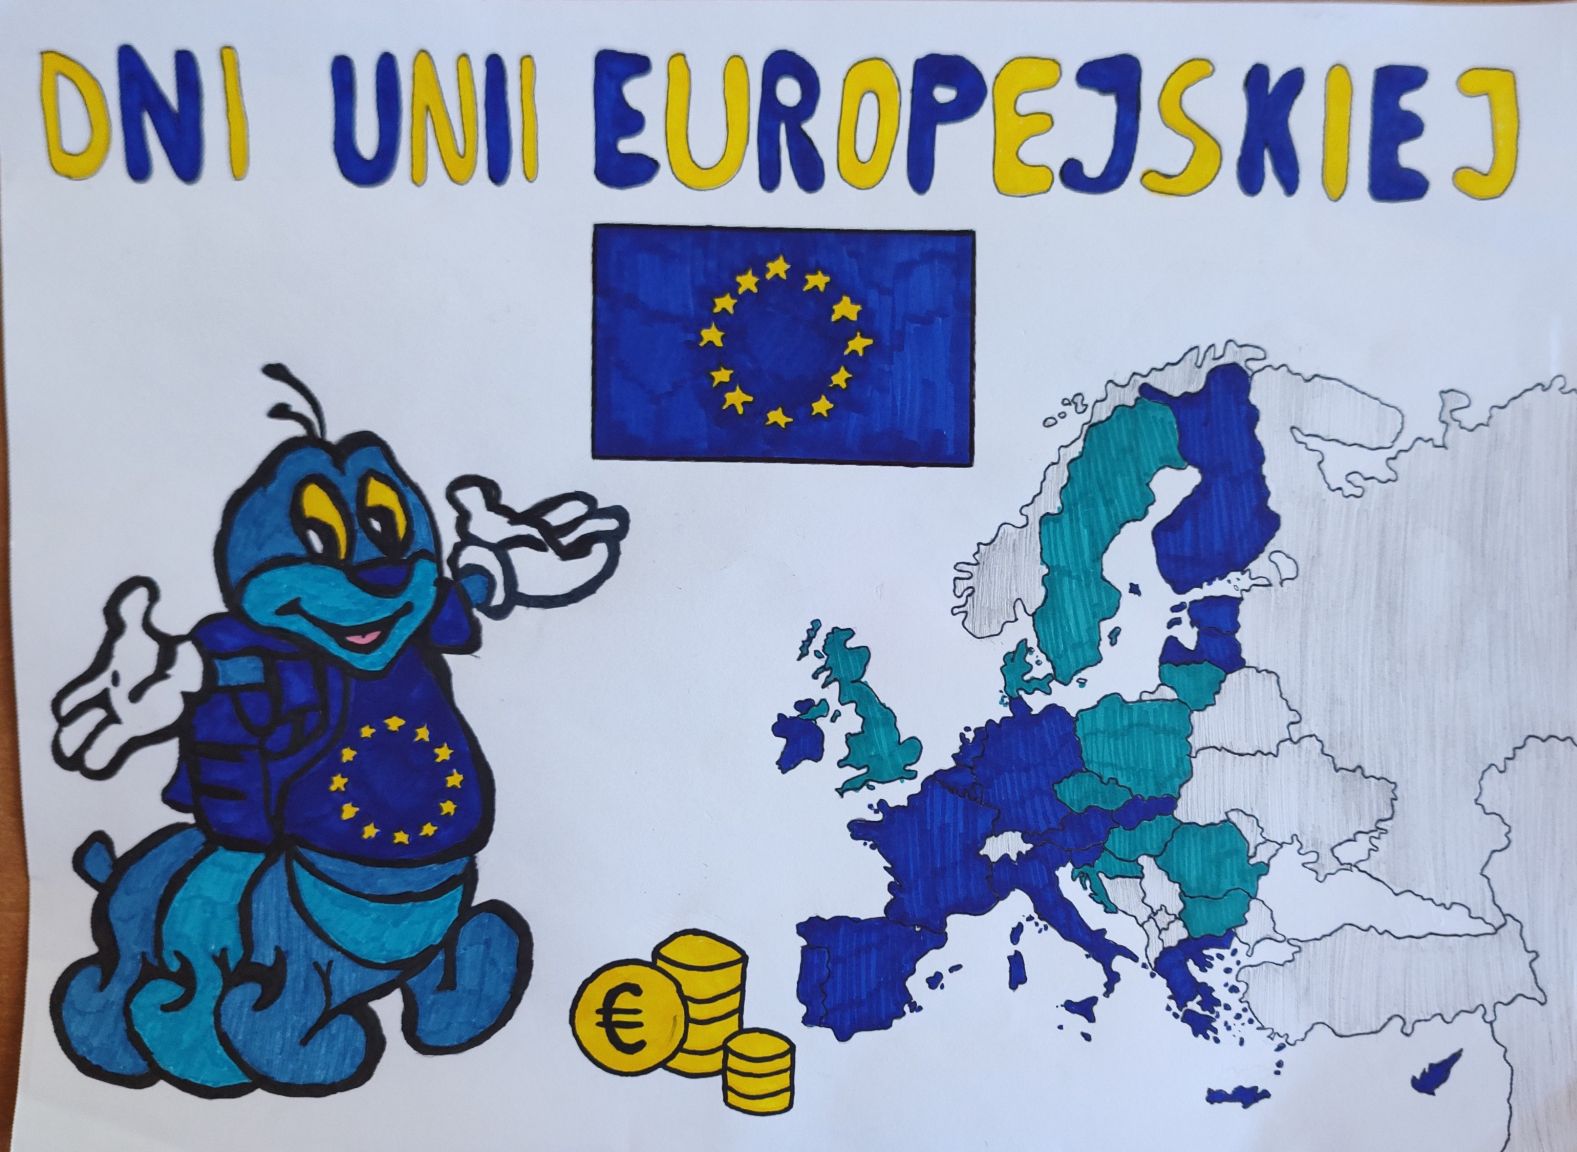 DNI UNII EUROPEJSKIEJ
€